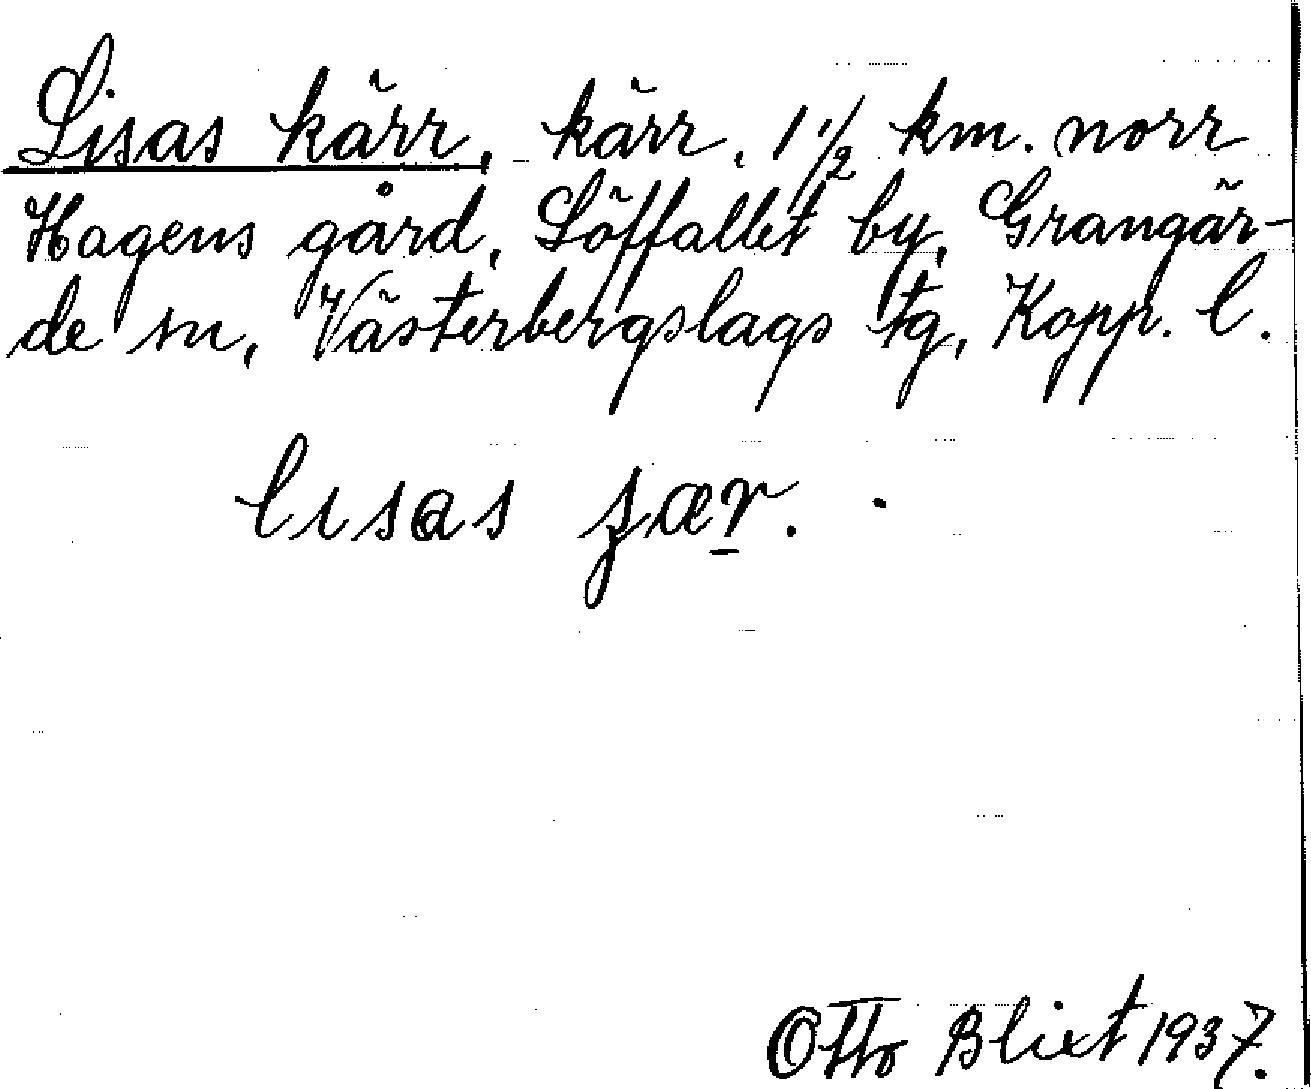 Lisas kärr, kärr, 1 1/2 km. norr
Hagens gård, Löffallet by, Grangär-
de sn, Västerbergslags tg, Kopp. l.
lısas ʂær.
Otto Blixt 1937.